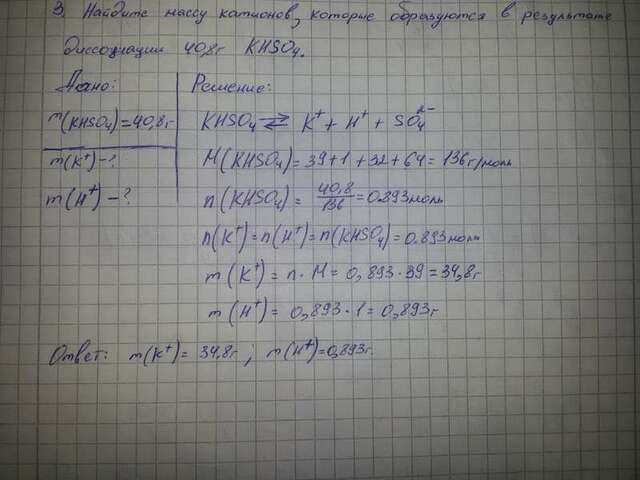 3. Найдите массу катионов, которые образуются в результате
диссоциации 40,8г KHSO₄.
Дано:
m(KHSO₄)=40,8г
m(K⁺)-?
m(H⁺)-?
Решение:
KHSO₄ ⇄ K⁺ + H⁺ + SO₄²⁻
M(KHSO₄)=39+1+32+64=136г/моль
n(KHSO₄)= 40,8/136 =0.893моль
n(K⁺)=n(H⁺)=n(KHSO₄)=0.893моль
m(K⁺)= n·M= 0,893·39=34,8г
m(H⁺)= 0,893·1=0,893г
Ответ: m(K⁺)= 34,8г; m(H⁺)=0,893г.